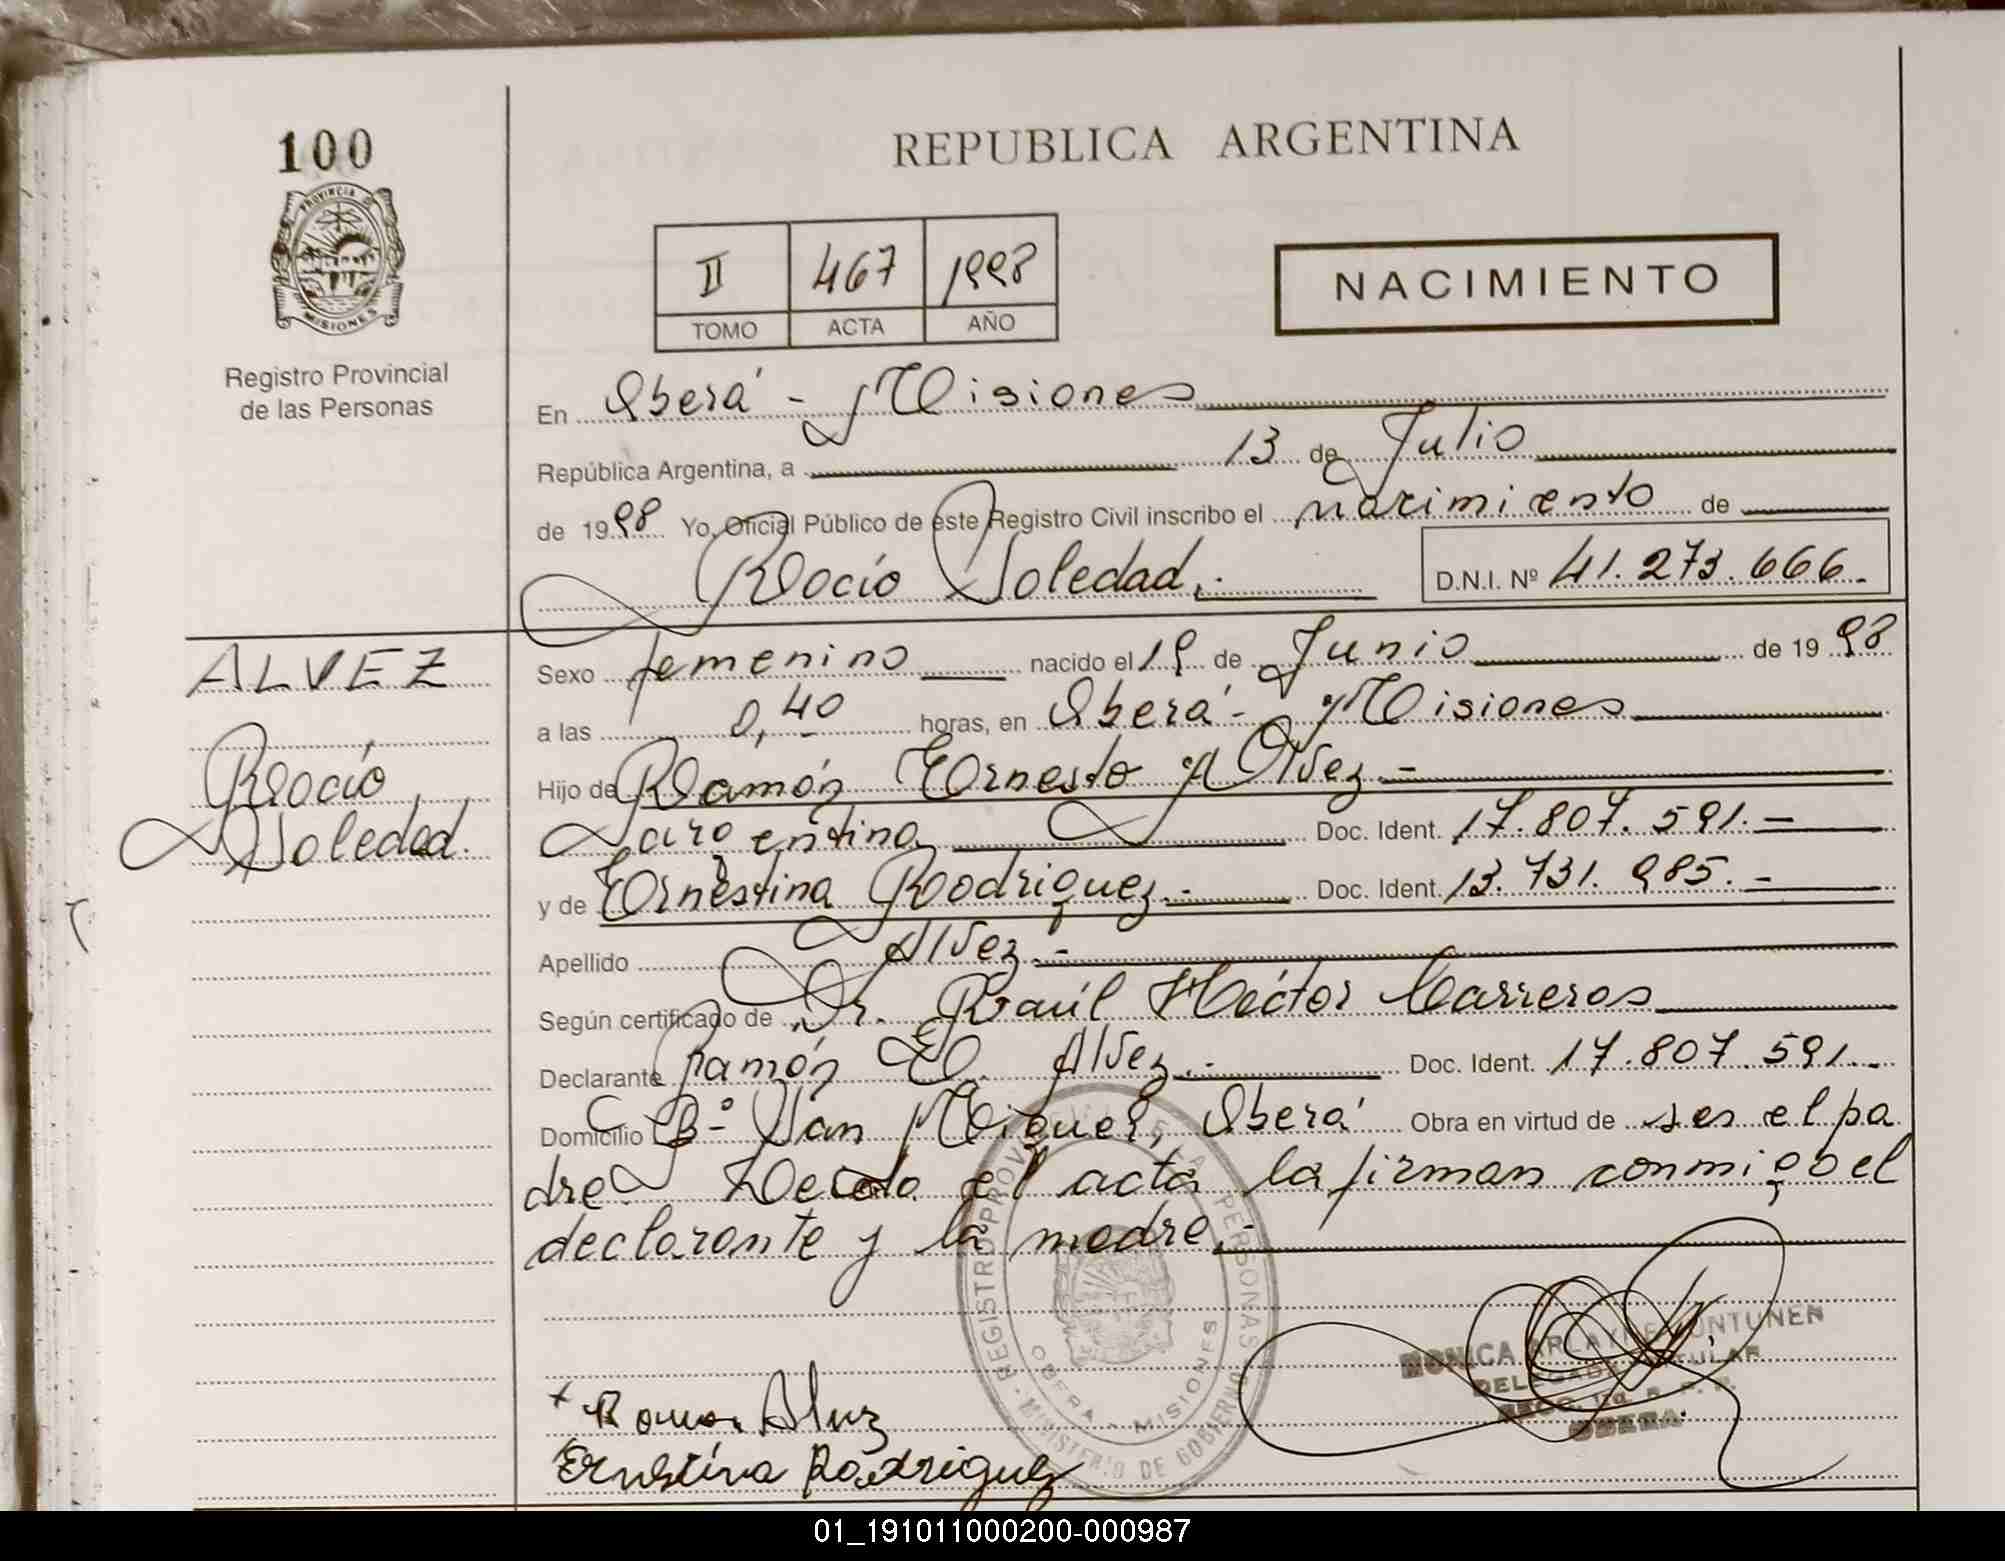 100
PROVINCIA DE
MISIONES
Registro Provincial
de las Personas
REPUBLICA ARGENTINA
II 467 1998
TOMO ACTA AÑO
NACIMIENTO
En Oberá - Misiones
República Argentina, a 13 de Julio
de 1998 Yo, Oficial Público de este Registro Civil inscribo el nacimiento de
Rocío Soledad.- D.N.I. Nº 41.273.666.
ALVEZ
Rocío
Soledad.
Sexo femenino nacido el 19 de Junio de 1998
a las 0,40 horas, en Oberá - Misiones
Hijo de Ramón Ernesto Alvez.-
argentina Doc. Ident. 17.807.591.-
y de Ernestina Rodriguez.- Doc. Ident. 13.731.985.-
Apellido Alvez.-
Según certificado de Dr. Raúl Héctor Carreros
Declarante Ramón E. Alvez.- Doc. Ident. 17.807.591.-
Domicilio Bº San Miguel, Oberá Obra en virtud de ser el pa
dre. el acta la firman conmigo el
declarante y la madre.-
REGISTRO PROVINCIAL DE LAS PERSONAS
OBERA - MISIONES
MINISTERIO DE GOBIERNO
MONICA
DELEGADA TITULAR
OBERA
+ Ramon Alvez
Ernestina Rodriguez
01_191011000200-000987